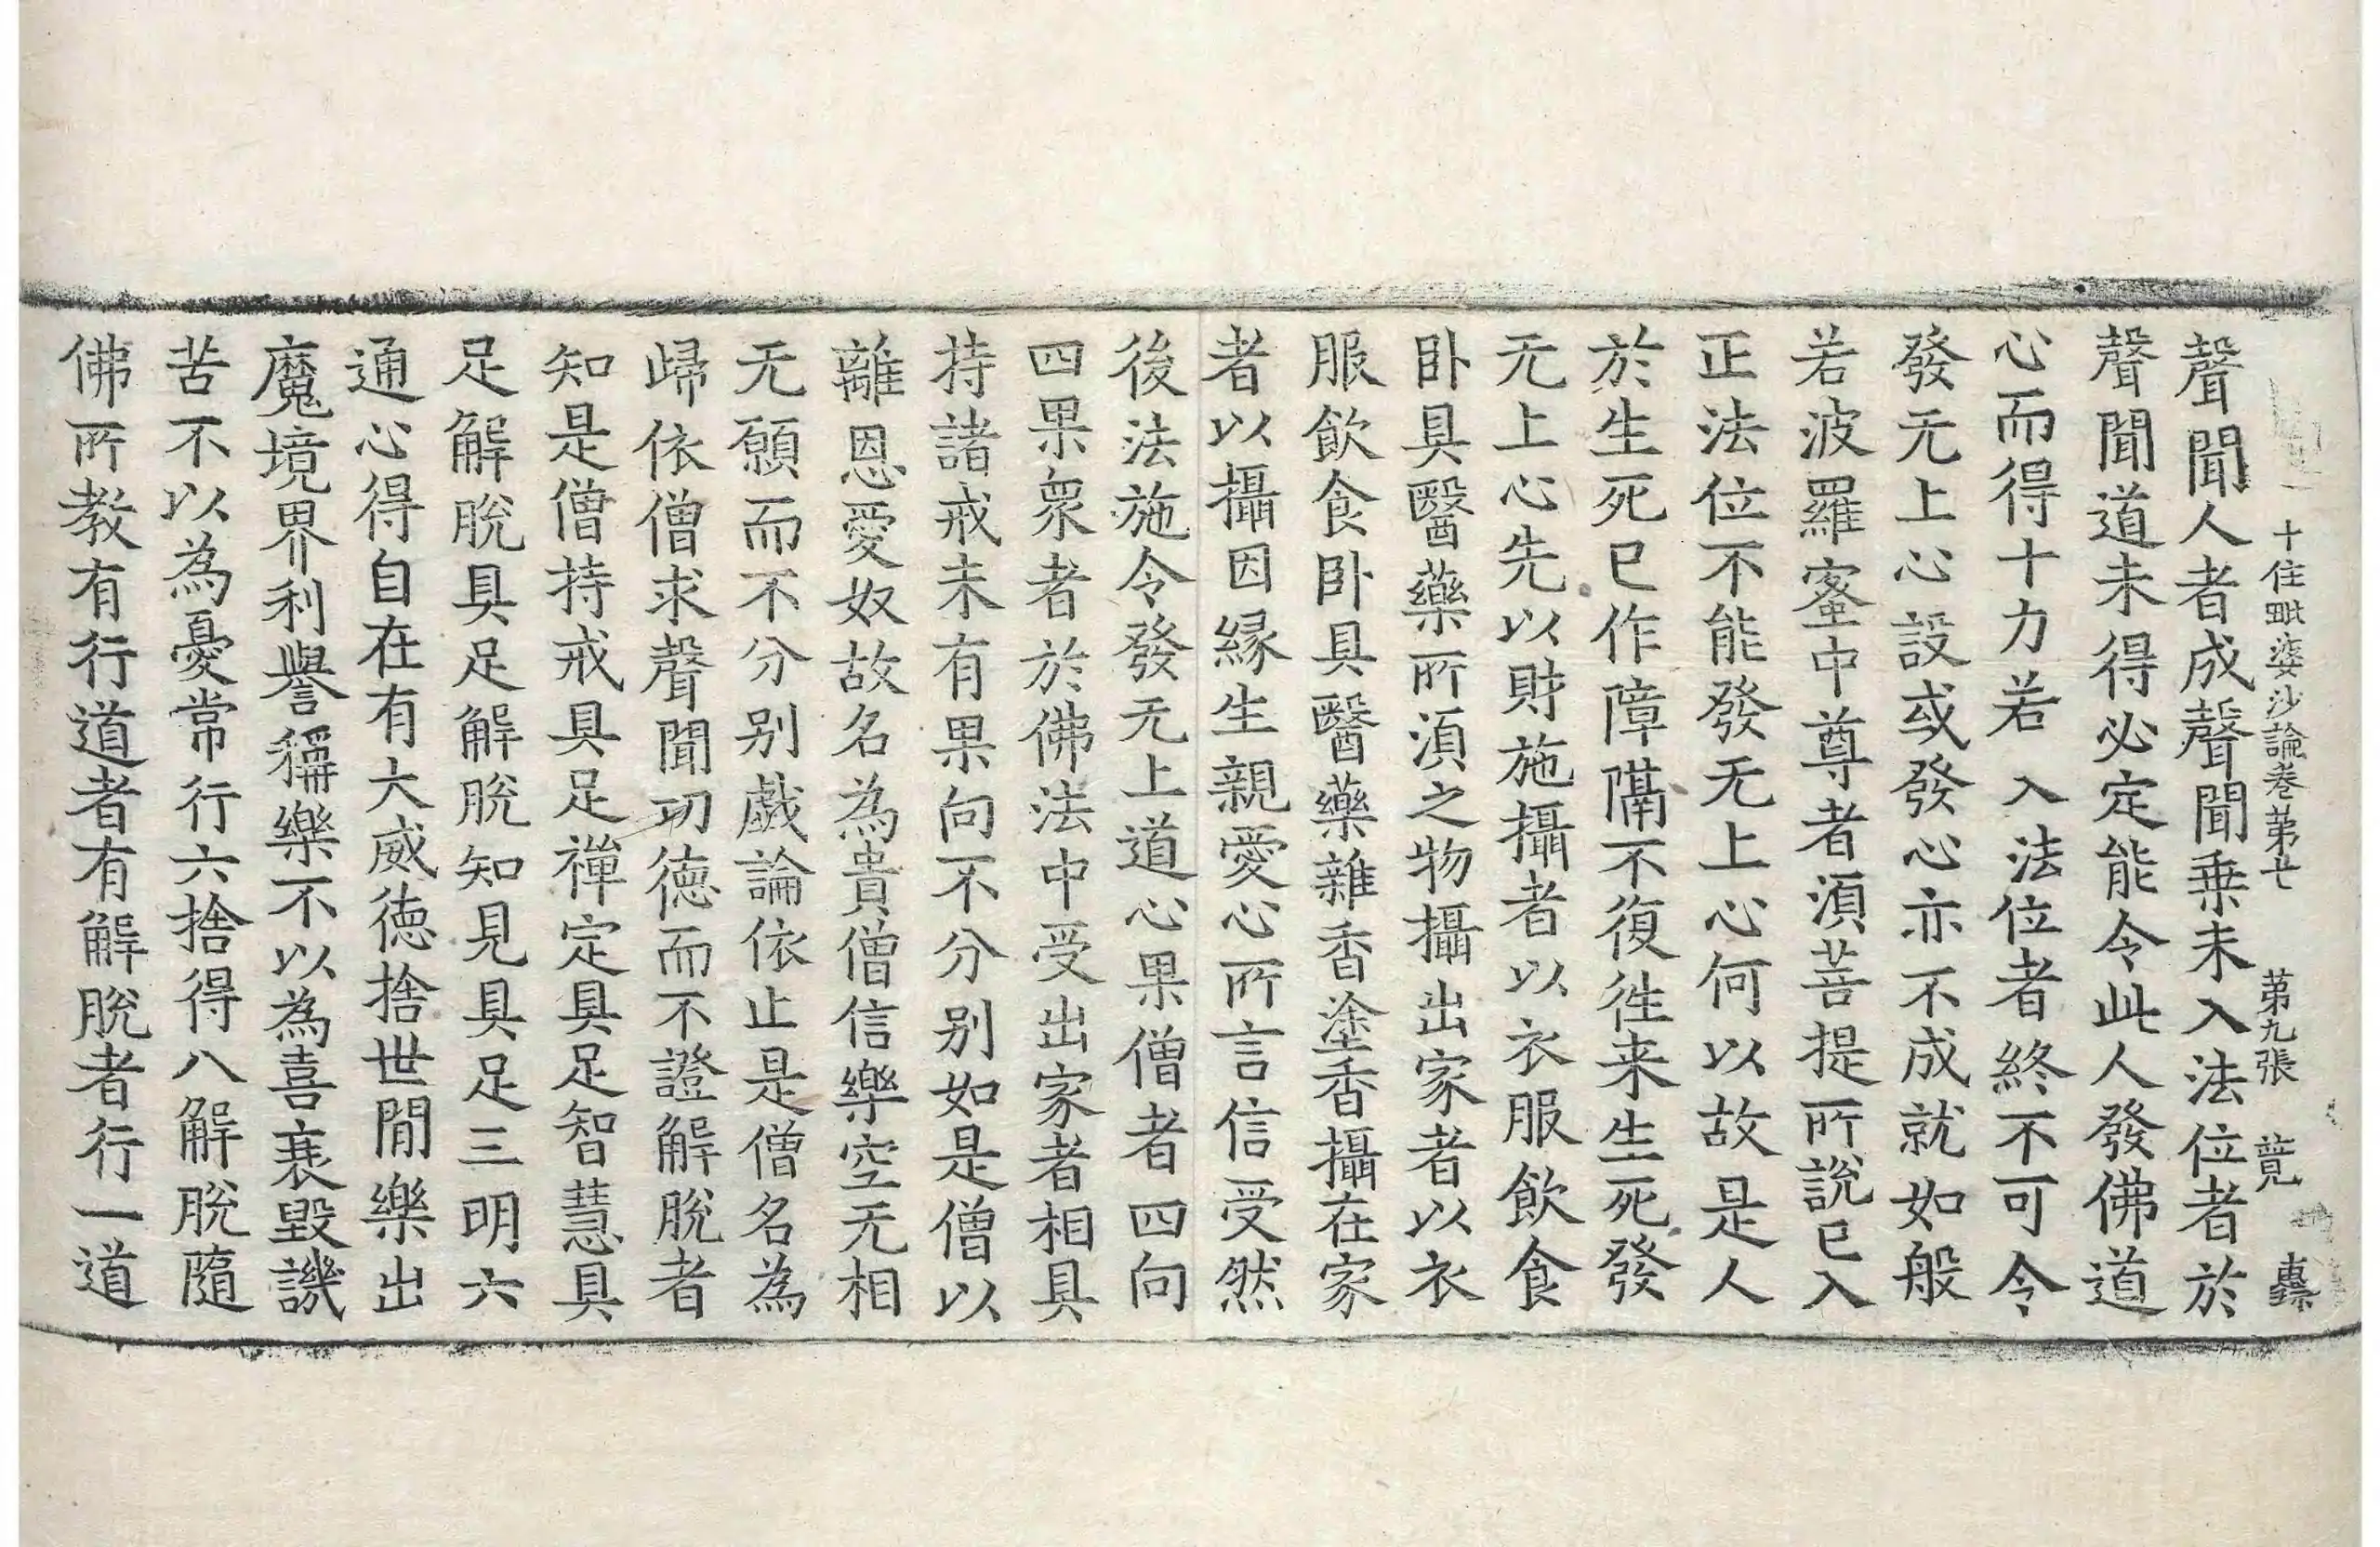 十住毗婆沙論卷第七　第九張　莧
聲聞人者成聲聞乗未入法位者於
聲聞道未得必定能令此人發佛道
心而得十力若　入法位者終不可令
發无上心設或發心亦不成就如般
若波羅蜜中尊者湏菩提所說已入
正法位不能發无上心何以故是人
於生死已作障隔不復徃来生死發
无上心先以財施攝者以衣服飲食
卧具醫藥所湏之物攝出家者以衣
服飲食卧具醫藥雜香塗香攝在家
者以攝因縁生親愛心所言信受然
後法施令發无上道心果僧者四向
四果衆者於佛法中受出家者相具
持諸戒未有果向不分别如是僧以
離恩愛奴故名為貴僧信樂空无相
无願而不分别戲論依止是僧名為
歸依僧求聲聞功徳而不證解脫者
知是僧持戒具足禪定具足智慧具
足解脫具足解脫知見具足三明六
通心得自在有大威徳捨世間樂出
魔境界利譽稱樂不以為喜衰毀譏
苦不以為憂常行六捨得八解脫隨
佛所教有行道者有解脫者行一道